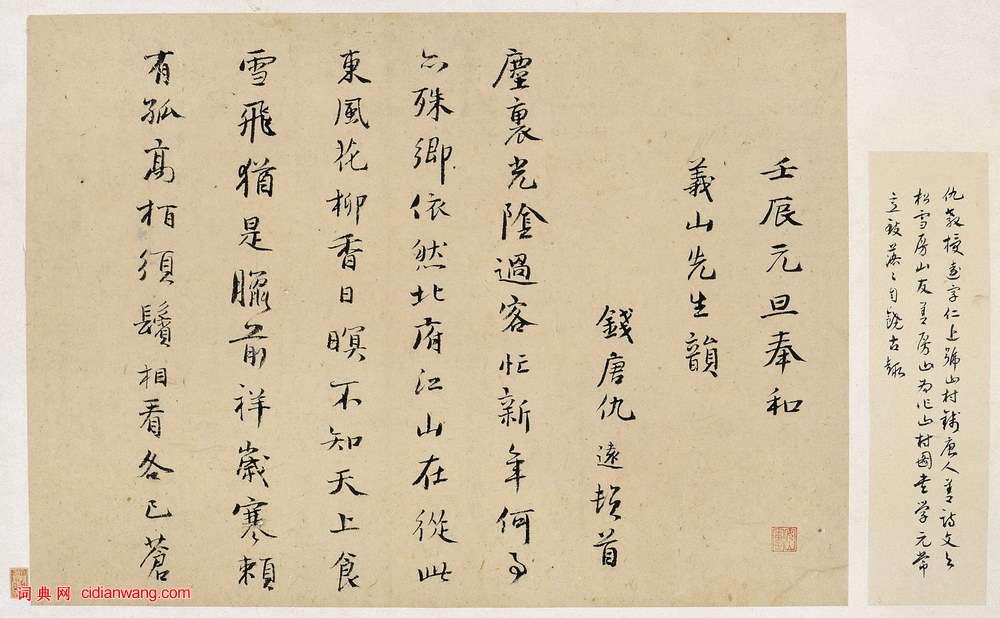 仇教授遠字仁上號山村錢唐人善詩文與
松雪房山友善房山為作山村圖書学元常
落〻自饒古趣
壬辰元旦奉和
義山先生韻
錢唐仇遠頓首
塵裏光陰過客忙新年何事
亦殊鄉依然北府江山在從此
東風花柳香日暝不知天上食
雪飛猶是臘前祥歲寒賴
有孤高栢須鬢相看各已蒼
词典网 cidianwang.com